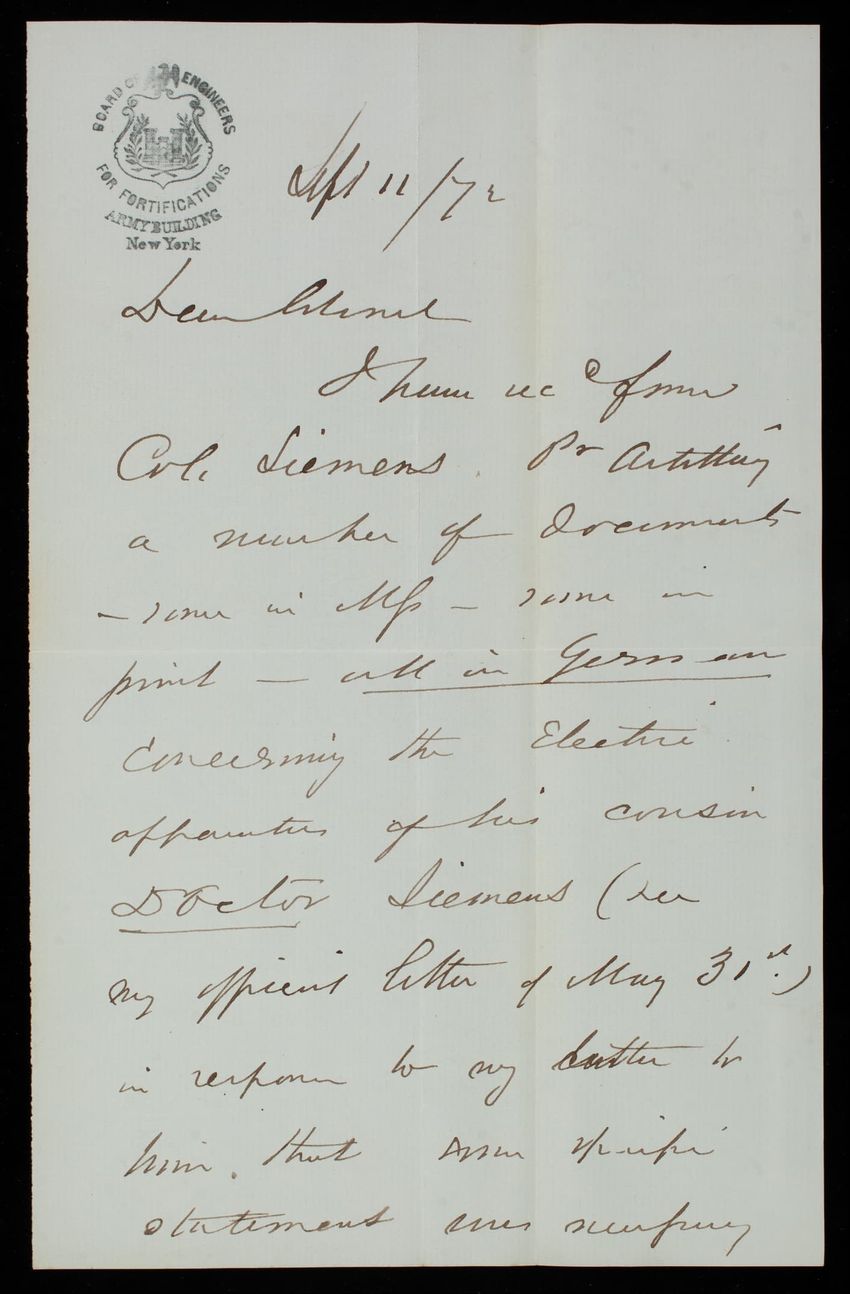 BOARD OF ENGINEERS
FOR FORTIFICATIONS
ARMY BUILDING
New York
Sept 11/72
Dear Colonel
I have recd from
Col. Siemens Pr Artillery
a number of documents
- some in Mss - some in
print - all in German
concerning the Electric
apparatus of his cousin
Doctor Siemens (see
my official letter of May 31st.)
in response to my letter to
him. that some specific
statement was necessary